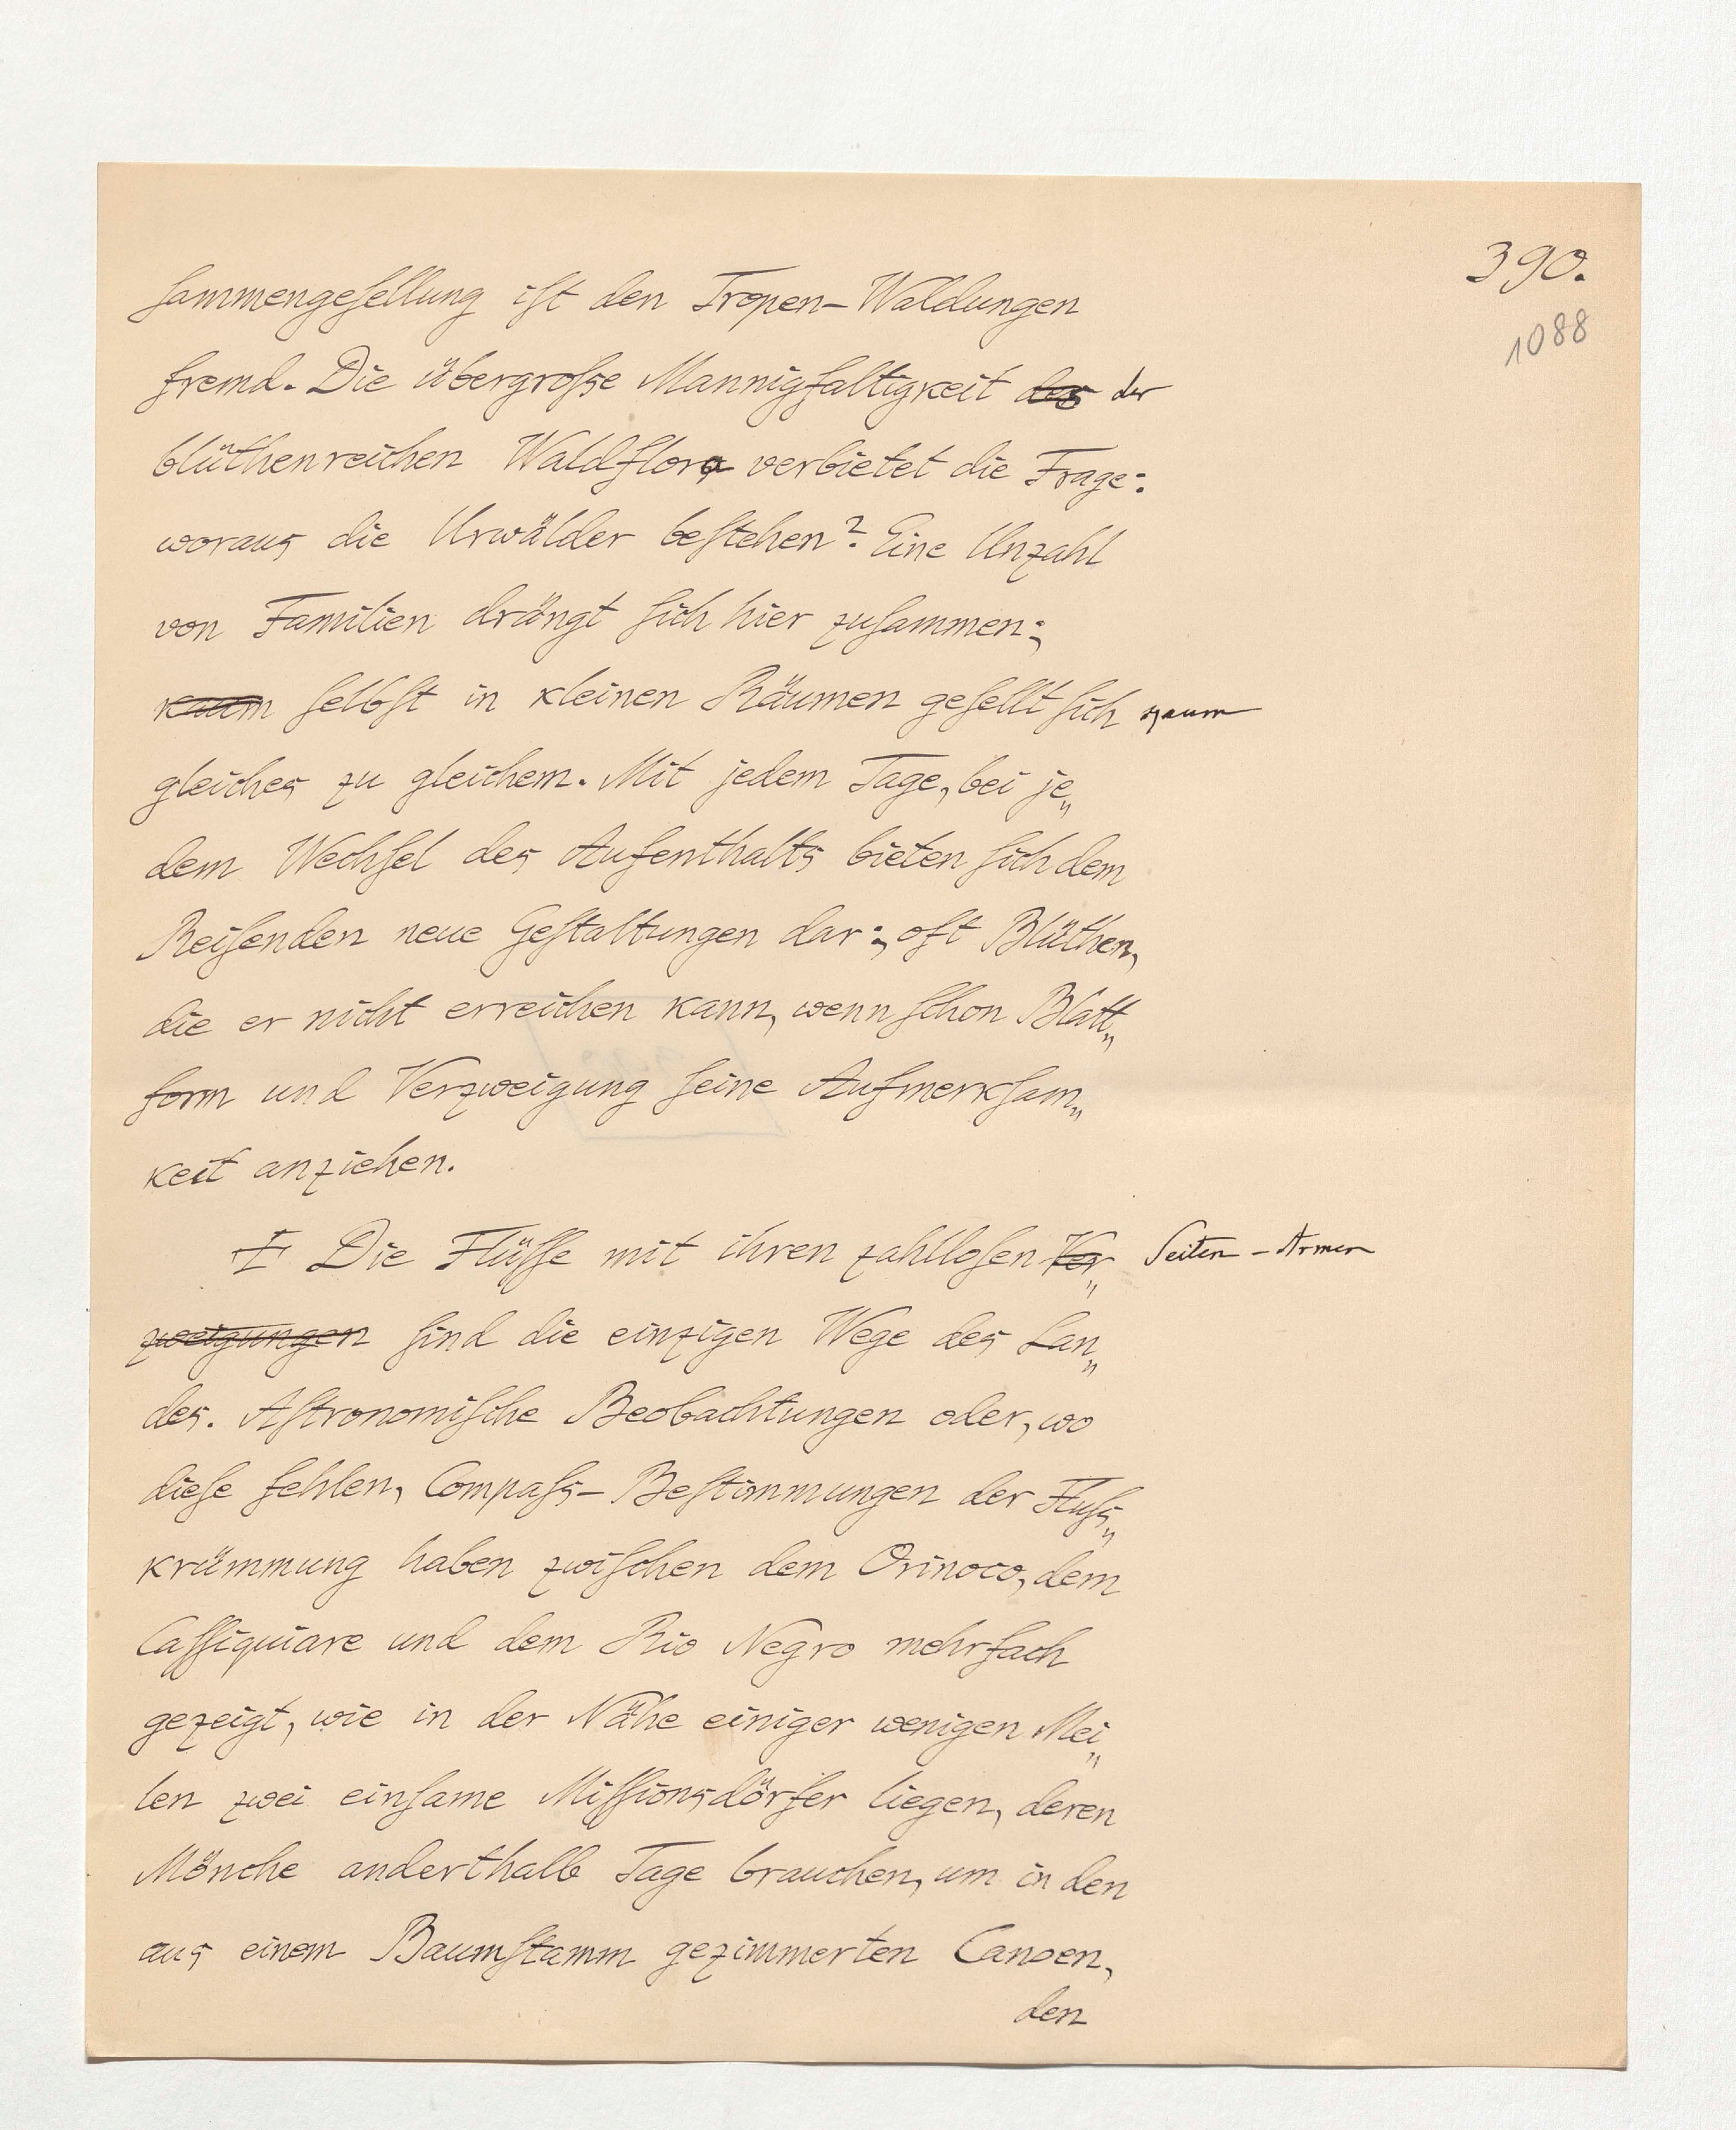 390.
1088
ſammengeſellung iſt den Tropen-Waldungen
fremd. Die übergroſse Mannigfaltigkeit des der
blüthenreichen Waldflora verbietet die Frage:
woraus die Urwälder beſtehen? Eine Unzahl
von Familien drängt ſich hier zuſammen;
kaum ſelbſt in kleinen Räumen geſellt ſich kaum
gleiches zu gleichem. Mit jedem Tage, bei je„
dem Wechſel des Aufenthalts bieten ſich dem
Reiſenden neue Geſtaltungen dar; oft Blüthen,
die er nicht erreichen kann, wenn ſchon Blatt„
form und Verzweigung ſeine Aufmerkſam„
keit anziehen.
Die Flüſſe mit ihren zahlloſen Ver„ Seiten-Armen
zweigungen ſind die einzigen Wege des Lan„
des. Aſtronomiſche Beobachtungen oder, wo
dieſe fehlen, Compaſs-Beſtimmungen der Fluſs„
krümmung haben zwiſchen dem Orinoco, dem
Caſſiquiare und dem Rio Negro mehrfach
gezeigt, wie in der Nähe einiger wenigen Mei„
len zwei einſame Miſſionsdörfer liegen, deren
Mönche anderthalb Tage brauchen, um in den
aus einem Baumſtamm gezimmerten Canoen,
den